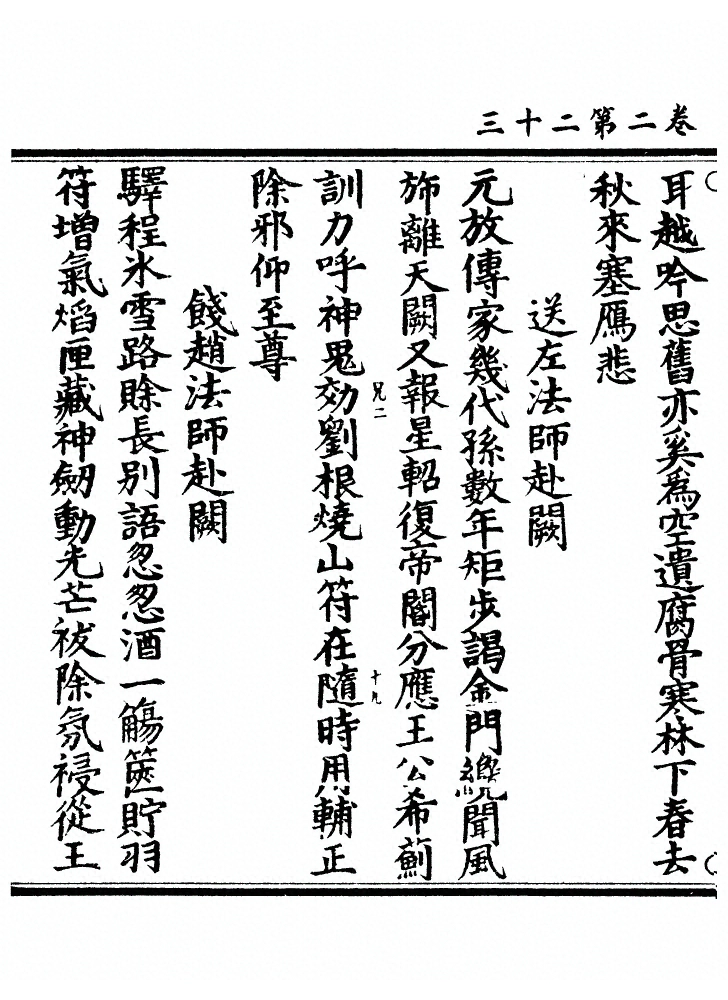 卷二第二十三
耳越吟思舊亦奚為空遺腐骨寒林下春去
秋來塞鴈悲
送左法師赴闕
元放傳家幾代孫數年矩步謁金門纔聞風
斾離天闕又報星軺復帝閽分應王公希薊
訓力呼神鬼効劉根燒山符在隨時用輔正
兄二
十九
除邪仰至尊
餞趙法師赴闕
驛程氷雪路賒長别語怱怱酒一觴篋貯羽
符增氣熖匣藏神劒動光芒袚除氛祲從王